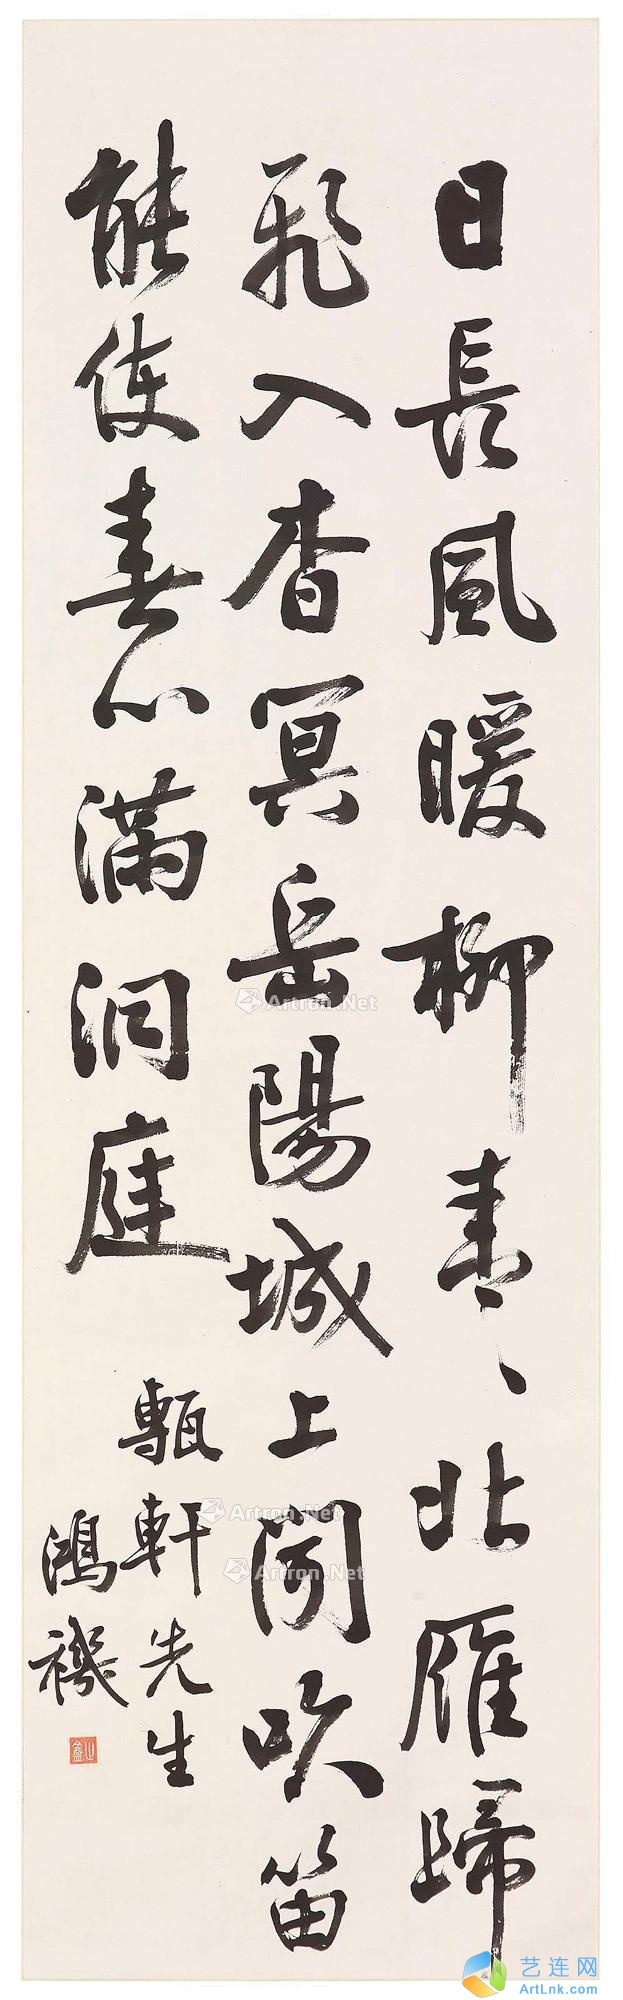 日長風暖柳青、北雁歸
飛入杳冥岳陽城上聞吹笛
能使春心滿洞庭
甎軒先生
鴻禨
Artron.Net
Artron.Net
Artron.Net
艺连网
ArtLnk.com